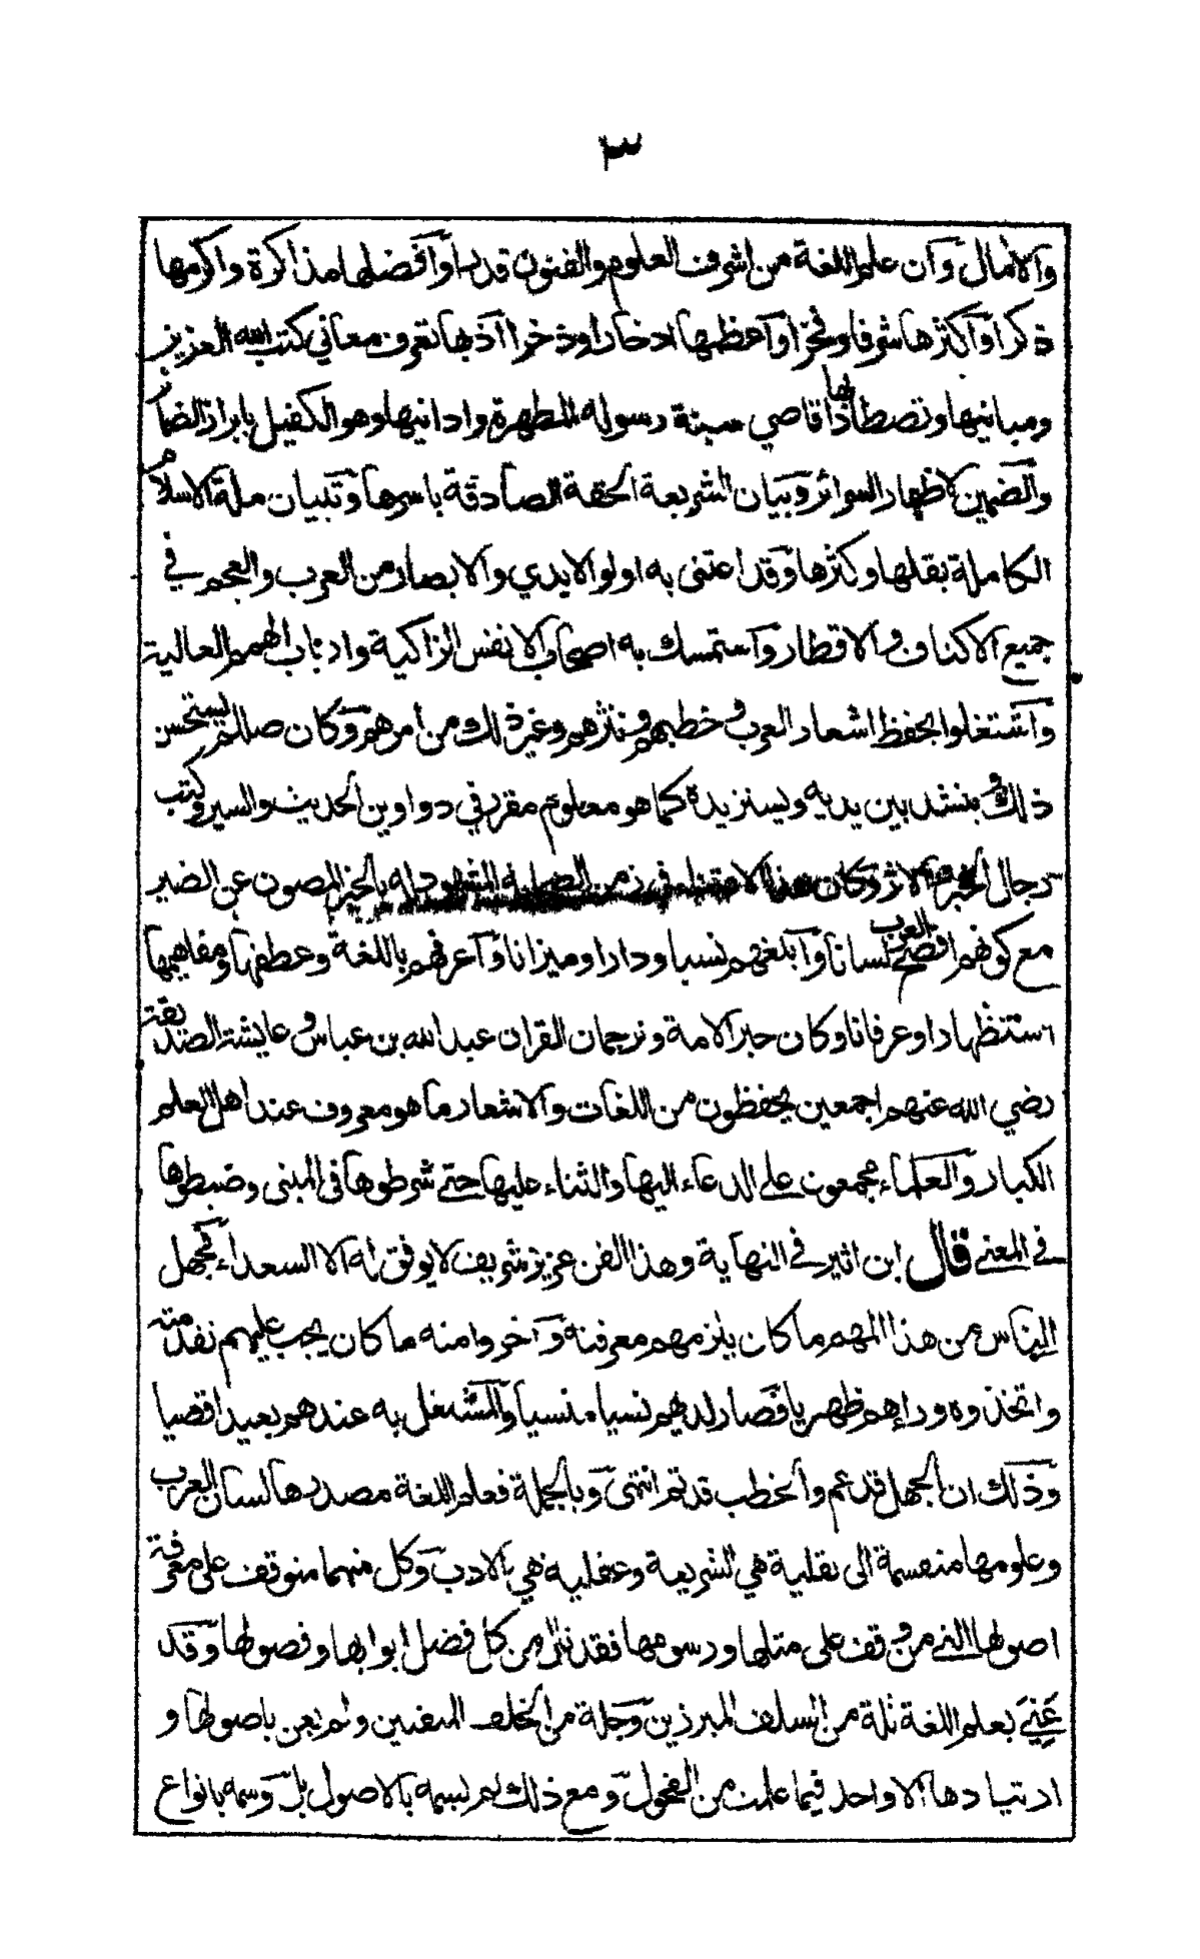 ٣
والآمال وان علم اللغة من اشرف العلوم والفنون قدرا وافضلها مذاكرة واكرمها
ذكرا واكثرها شرفا وفخرا واعظمها ادخارا وذخرا اذ بها تعرف معاني كتب الله العزيز
ومبانيها وتصطاد بها اقاصي سنة رسوله المطهرة وادانيها وهو الكفيل بابراز الضمائر
والضمين لاظهار السوائر وبيان الشريعة الحقة الصادقة باسرها وتبيان ملة الاسلام
الكاملة بقلها وكثرها وقد اعتنى به اولو الايدي والابصار من العرب والعجم في
جميع الاكناف والاقطار واستمسك به اصحاب الانفس الزاكية وارباب الهمم العالية
واشتغلوا بحفظ اشعار العرب وخطبهم ونثرهم وغير ذلك من امرهم وكان صللم يستحسن
ذلك وينشد بين يديه ويستزيده كما هو معلوم مقرر في دواوين الحديث والسير وكتب
رجال الخبر والاثر وكان هذا الاعتناء في زمن الصحابة المشهود له بالخير المصون عن الضير
مع كونهم افصح العرب لسانا وابلغهم نسبا ودارا وميزانا واعرفهم باللغة وعطفها ومفاهيمها
استظهارا وعرفانا وكان حبر الامة وترجمان القران عبد الله بن عباس وعايشة الصديقة
رضي الله عنهم اجمعين يحفظون من اللغات والاشعار ما هو معروف عند اهل العلم
الكبار والعلماء مجمعون على الدعاء اليها والثناء عليها حتى شرطوها في المبنى وضبطوها
في المعنى قال ابن اثير في النهاية وهذا الفن عزيز شريف لا يوفق له الا السعداء فجهل
الناس من هذا المهم ما كان يلزمهم معرفته واخروا منه ما كان يجب عليهم تقدمته
واتخذوه وراءهم ظهريا فصار لديهم نسيا منسيا والمشتغل به عندهم بعيدا قصيا
وذلك ان الجهل قد عم والخطب قد تم انتهى وبالجملة فعلم اللغة مصدرها لسان العرب
وعلومها منقسمة الى نقلية هي الشريعة وعقلية هي الادب وكل منهما متوقف على معرفة
اصولها التي من وقف على متلها ورسومها فقد نال من كل فضل ابوابها وفصولها وقد
عني بعلم اللغة ثلة من السلف المبرزين وجملة من الخلف المفنين ولم يعن باصولها و
ارتيادها الا واحد فيما علمت من الفحول ومع ذلك لم يسمه بالاصول بل وسمه بانواع